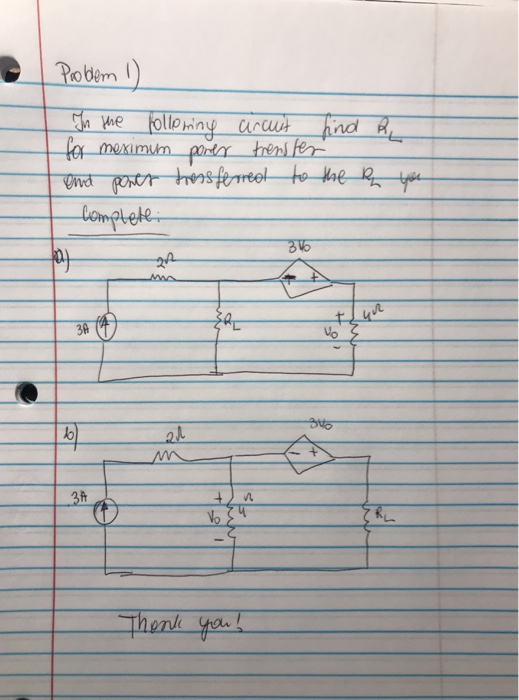 Problem 1)
In the following circuit find RL
for maximum power transfer
and power transferred to the RL you
Complete:
a)
2Ω
3V0
3A
RL
+
V0
-
4Ω
- +
b)
2Ω
3V0
- +
3A
+
V0
-
Ω
4
RL
Thank you!